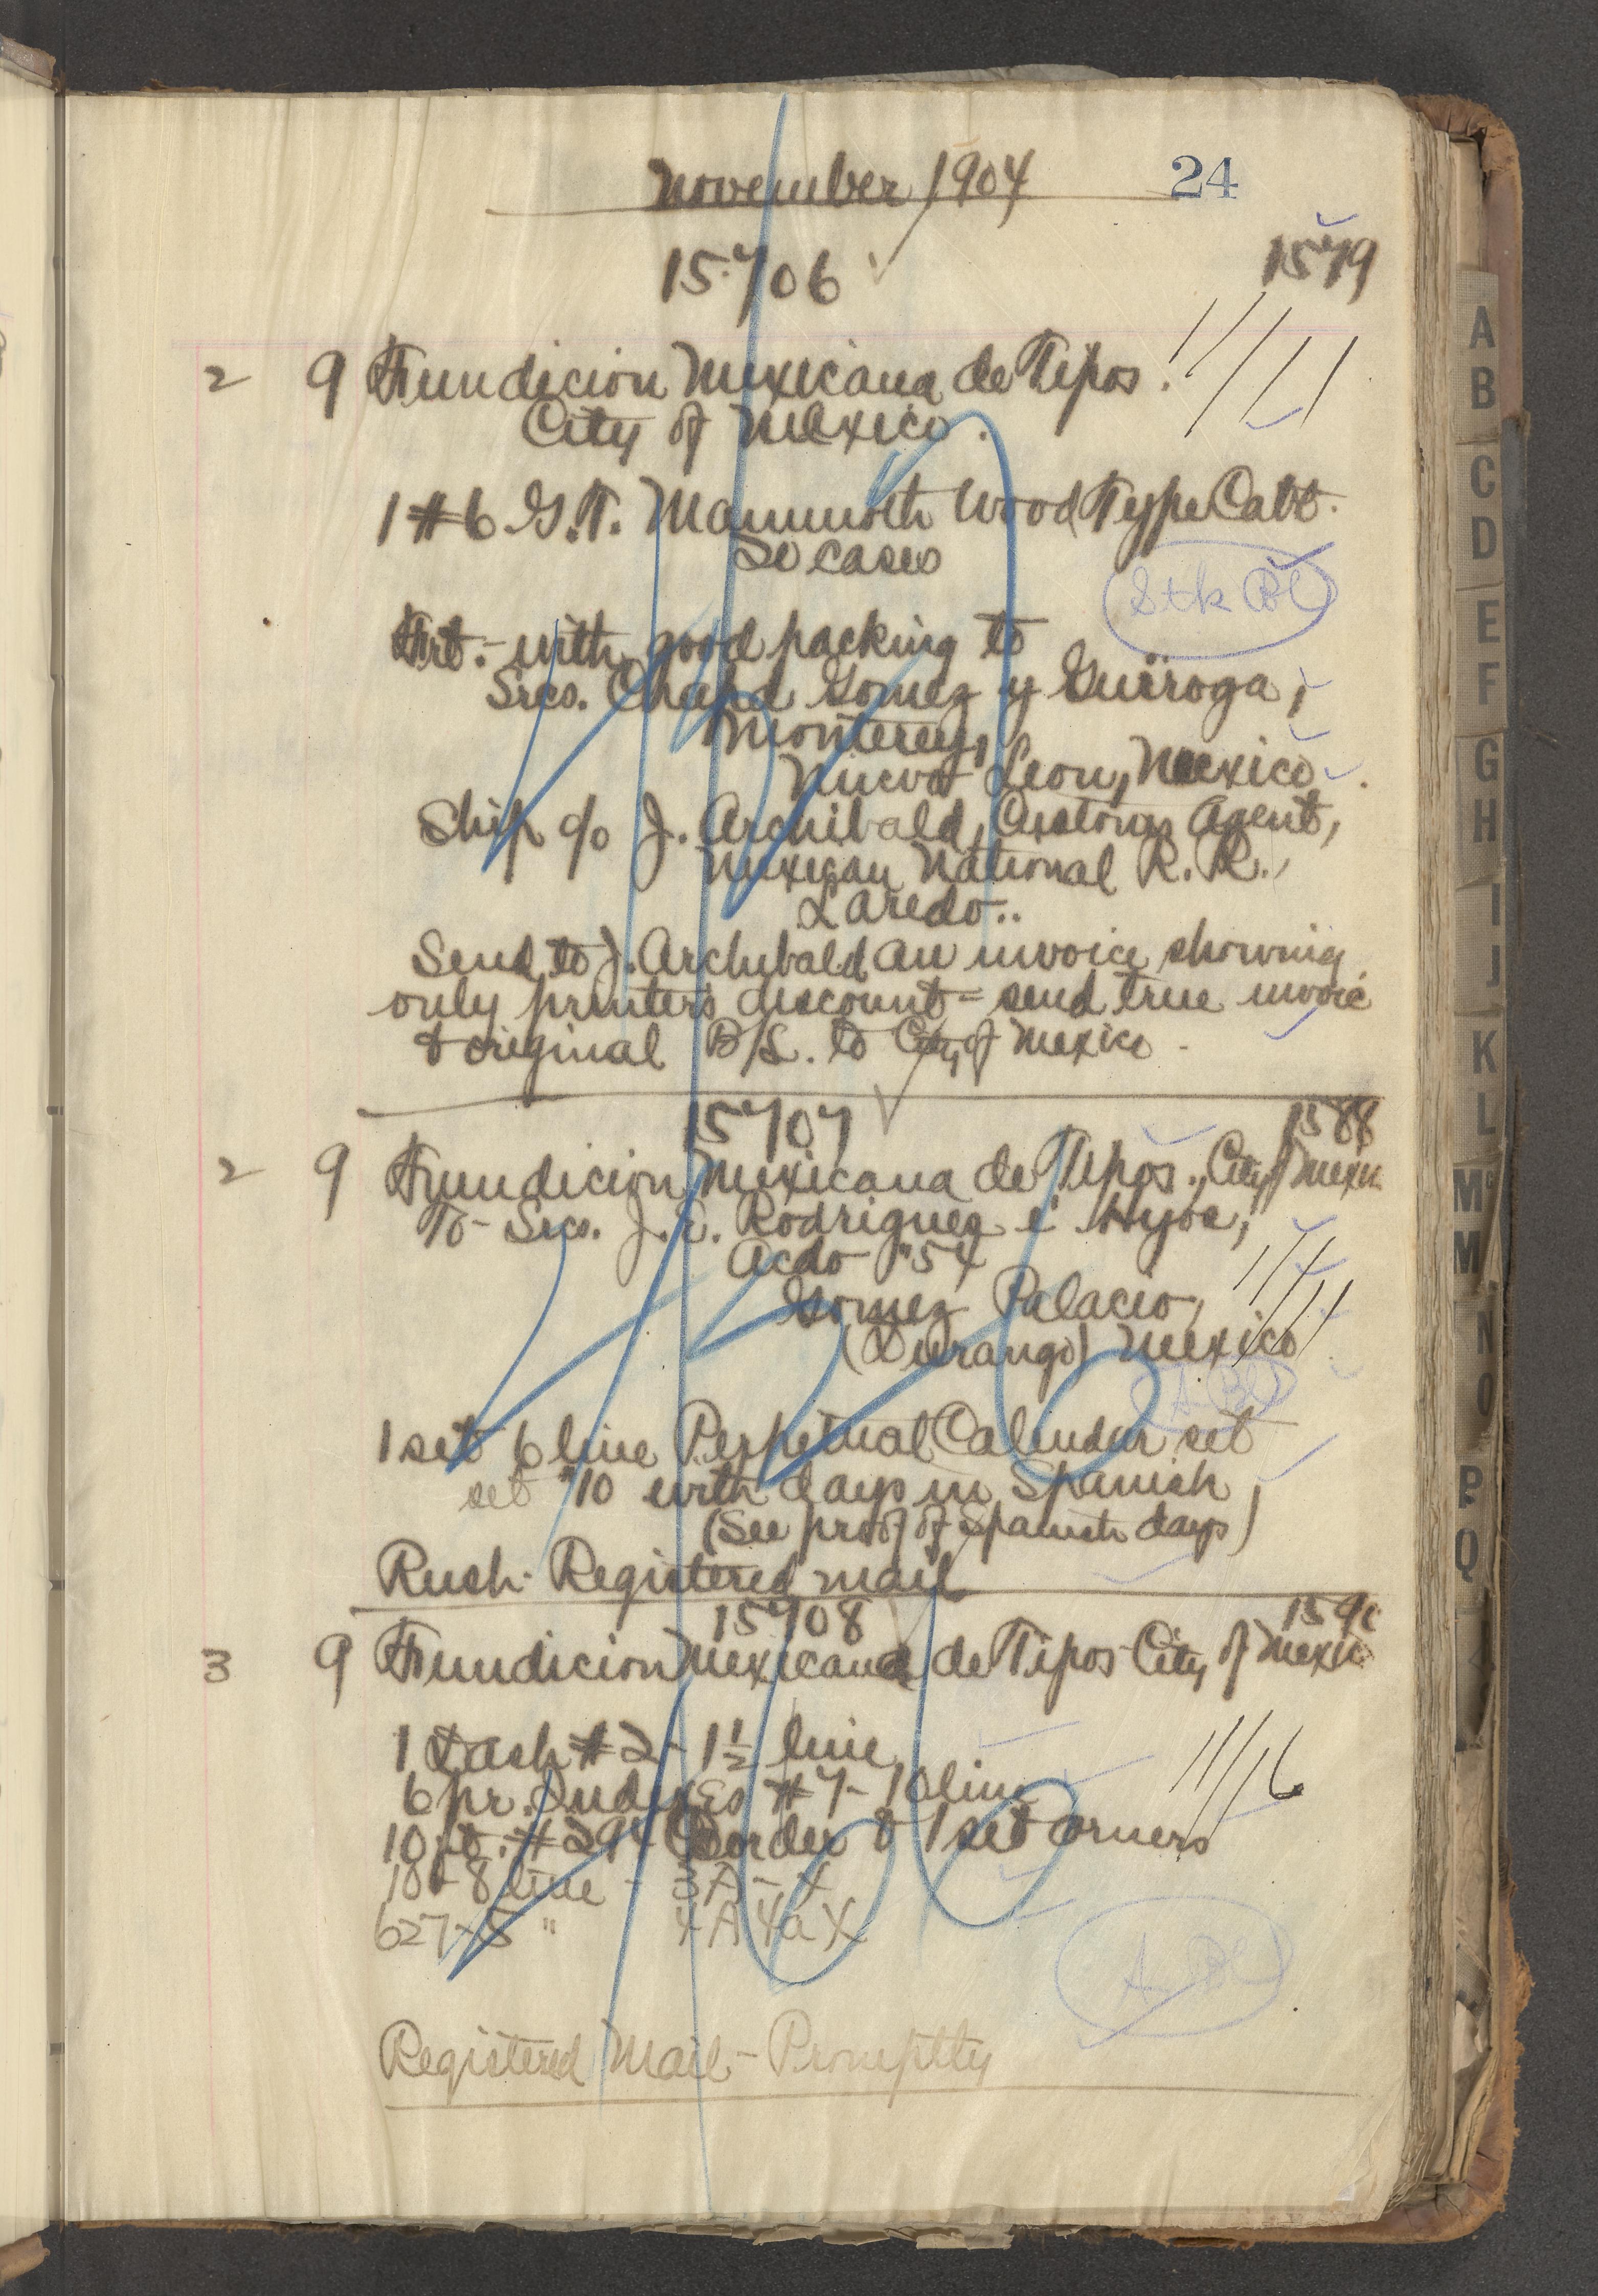 November 1904 24
15706 1579
2 9 Fundicion Mexicana de Tipos. 11/11
City of Mexico.
1 #6 G.T. Mammoth Wood Type Cabt.
20 cases
Stk Bl
Frt. - with good packing to
Sres. Gomez y Guirroga,
Monterey,
Nueva Leon, Mexico.
Ship c/o J. Archibald, Customs Agent,
Mexican National R. R.,
Laredo..
Send to J. Archibald an invoice showing
only printers discount = send true invoice
& original B/L. to City of Mexico -
15707 1588
2 9 Fundicion Mexicana de Tipos., City of Mexico
To - Sres. J. E. Rodriguez é Hyos,
Acdo #54 11/11
Gomez Palacio,
(Durango) Mexico
A. Bl
1 set 6 line Perpetual Calendar set
set #10 with days in Spanish
(See proof of Spanish days)
Rush - Registered mail
15708 159
3 9 Fundicion Mexicana de Tipos City of Mexico
1 Dash #2 - 1½ line 11/16
6 pr. Index Es #7 - 10 line
10 pt. #294 Border & 1 set corners
10 - 8 line - 3A - X
627 - 5 " 4A 4a X
A. Bl
Registered Mail - Promptly
A
B
C
D
E
F
G
H
I
J
K
L
Mc
M
N
O
P
Q